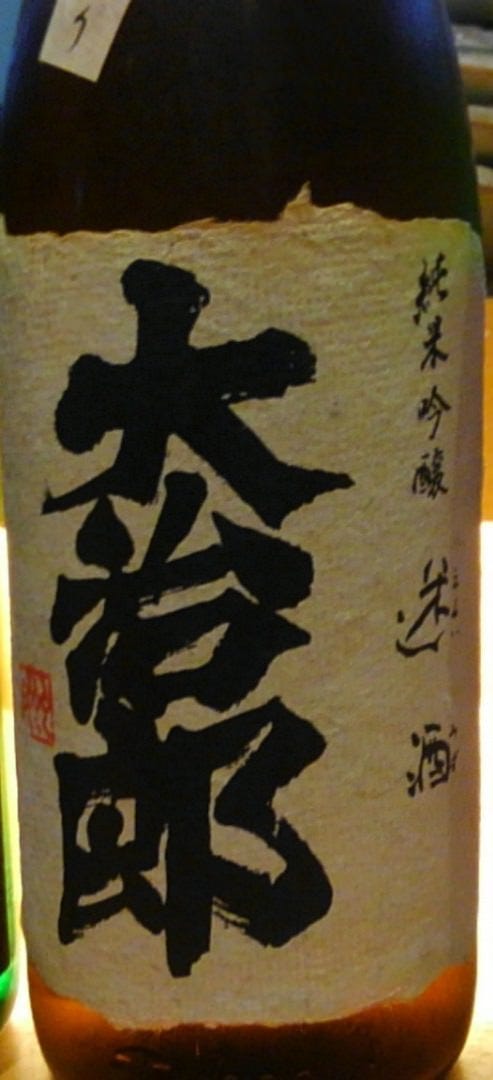 純米吟醸 迷酒
大治郎